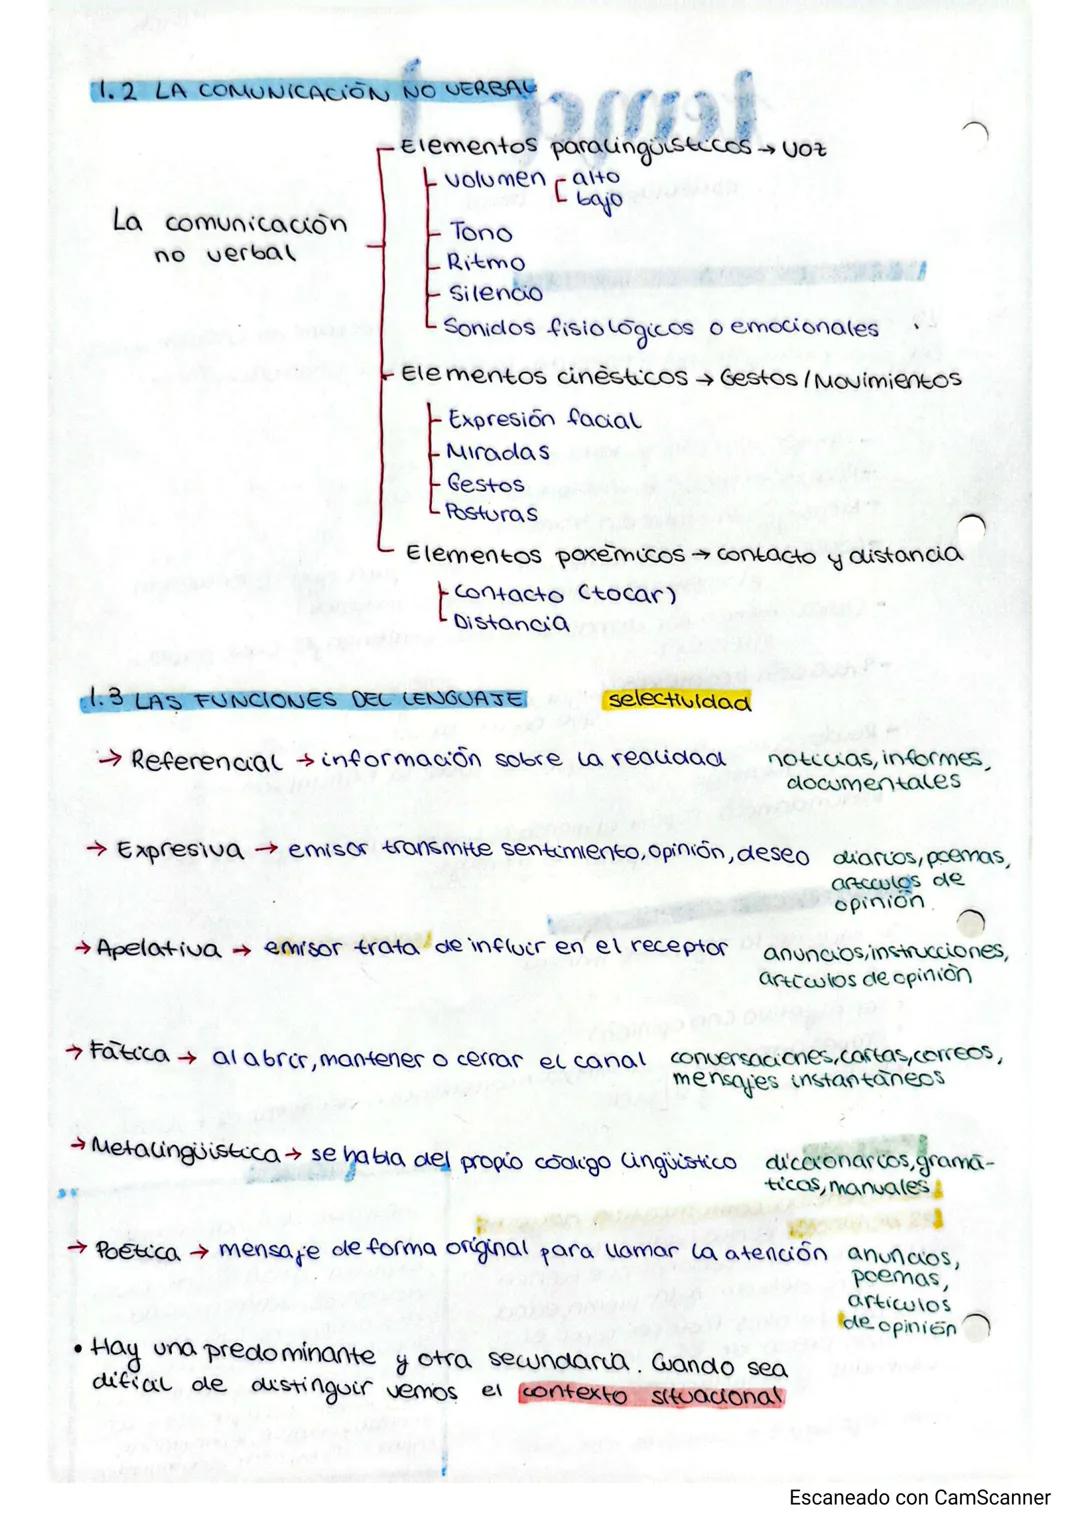 1.2 LA COMUNICACIÓN NO VERBAL
La comunicación
no verbal
Elementos paralingüísticos → voz
volumen
alto
bajo
Tono
Ritmo
Silencio
Sonidos fisiológicos o emocionales
Elementos cinésticos → Gestos / Movimientos
Expresión facial
Miradas
Gestos
Posturas
Elementos poxémicos → contacto y distancia
Contacto (tocar)
Distancia
1.3 LAS FUNCIONES DEL LENGUAJE selectividad
→ Referencial → información sobre la realidad noticias, informes,
documentales
→ Expresiva → emisor transmite sentimiento, opinión, deseo diarios, poemas,
artículos de
opinión.
→ Apelativa → emisor trata de influir en el receptor anuncios, instrucciones,
artículos de opinión
→ Fática → al abrir, mantener o cerrar el canal conversaciones, cartas, correos,
mensajes instantáneos
→ Metalingüística → se habla del propio código lingüístico diccionarios, gramá-
ticas, manuales
→ Poética → mensaje de forma original para llamar la atención anuncios,
poemas,
artículos
de opinión
• Hay una predominante y otra secundaria. Cuando sea
difícil de distinguir vemos el contexto situacional
Escaneado con CamScanner